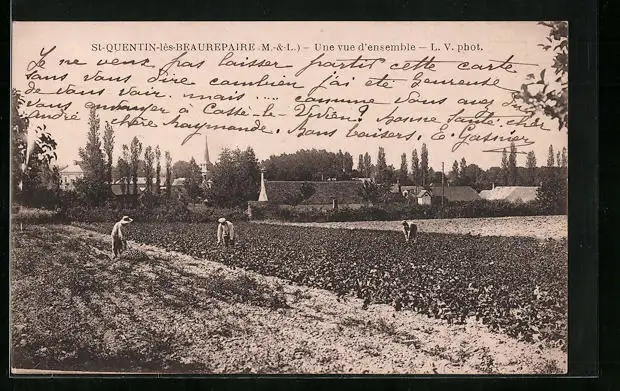 St-QUENTIN-lès-BEAUREPAIRE (M.-&-L.) – Une vue d'ensemble – L. V. phot.
Je ne veux pas laisser partir cette carte
sans vous dire combien j'ai été heureuse
de vous voir. mais .... comme vous avez dû
vous ennuyer à Cossé-le-Vivien! Bonne santé cher
André chère Raymonde. Bons baisers. E. Gasnier